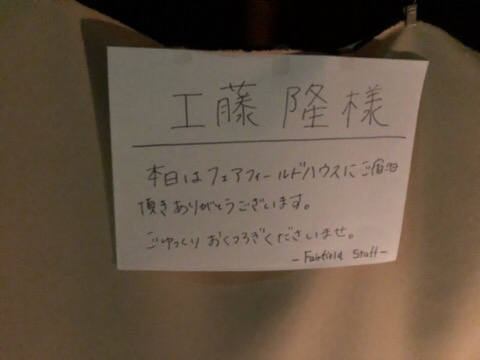 工藤 隆様
本日はフェアフィールドハウスにご宿泊
頂きありがとうございます。
ごゆっくり おくつろぎくださいませ。
- Fairfield Staff -